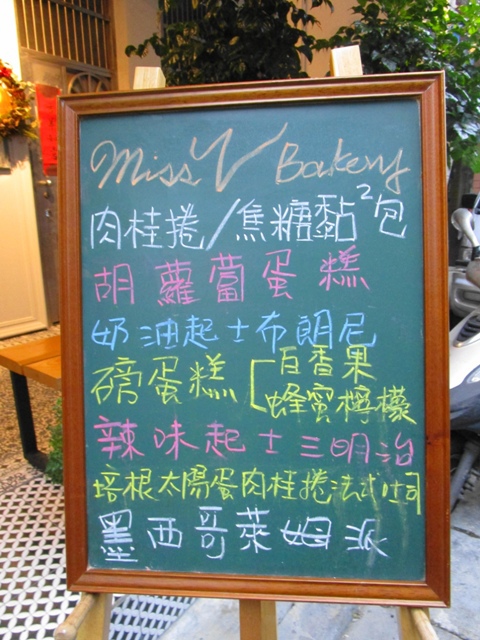 Miss V Bakery
肉桂捲/焦糖黏²包
胡蘿蔔蛋糕
奶油起士布朗尼
磅蛋糕[百香果
蜂蜜檸檬
辣味起士三明治
培根太陽蛋肉桂捲法式吐司
墨西哥萊姆派